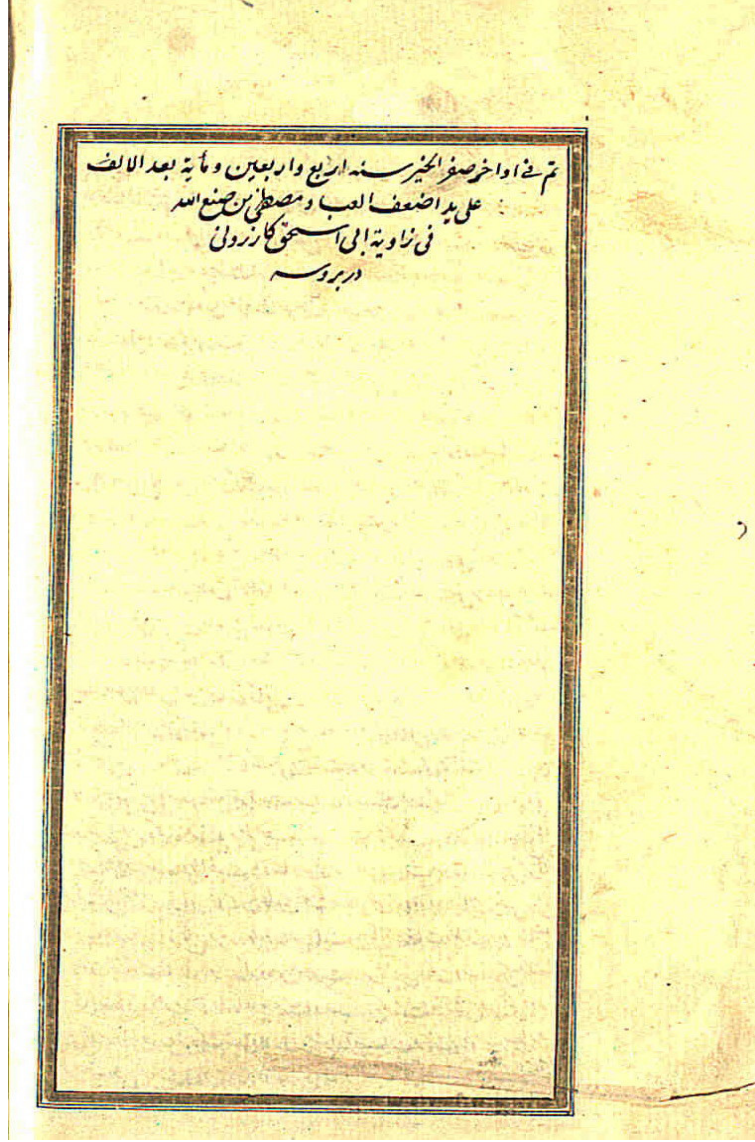 تم في اواخر صفر الخير سنه اربع واربعين ومأية بعد الالف
على يد اضعف العباد مصطفى بن صنع الله
فى زاوية ابى اسحق كازرونى
در بروسه